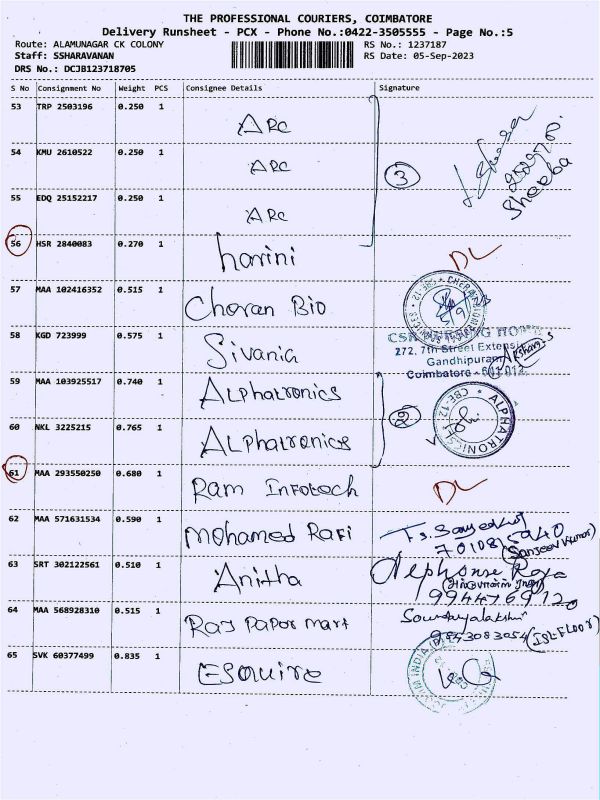 THE PROFESSIONAL COURIERS, COIMBATORE
Delivery Runsheet - PCX - Phone No.:0422-3505555 - Page No.:5
Route: ALAMUNAGAR CK COLONY RS No.: 1237187
Staff: SSHARAVANAN RS Date: 05-Sep-2023
DRS No.: DCJB123718705
S No Consignment No Weight PCS Consignee Details Signature
53 TRP 2503196 0.250 1 ARC
54 KMU 2610522 0.250 1 ARC
3
Sheeba
55 EDQ 25152217 0.250 1 ARC
56 HSR 2840083 0.270 1 harini DL
57 MAA 102416352 0.515 1 Cheran Bio
58 KGD 723999 0.575 1 Sivania
272, 7th Street Extension
Gandhipuram
Coimbatore - 641 012.
59 MAA 103925517 0.740 1 Alphatronics
2 ALPHATRONICS CBE-12
60 NKL 3225215 0.765 1 Alphatronics
61 MAA 293550250 0.680 1 Ram Infotech DL
62 MAA 571631534 0.590 1 Mohamed Rafi
(Sanjeev Kumar)
63 SRT 302122561 0.510 1 Anitha Alphonse Raja
9944769120
64 MAA 568928310 0.515 1 Raj Paper mart Soundyalakshmi
9843083054 (Ist FLOOR)
65 SVK 60377499 0.835 1 Esquire